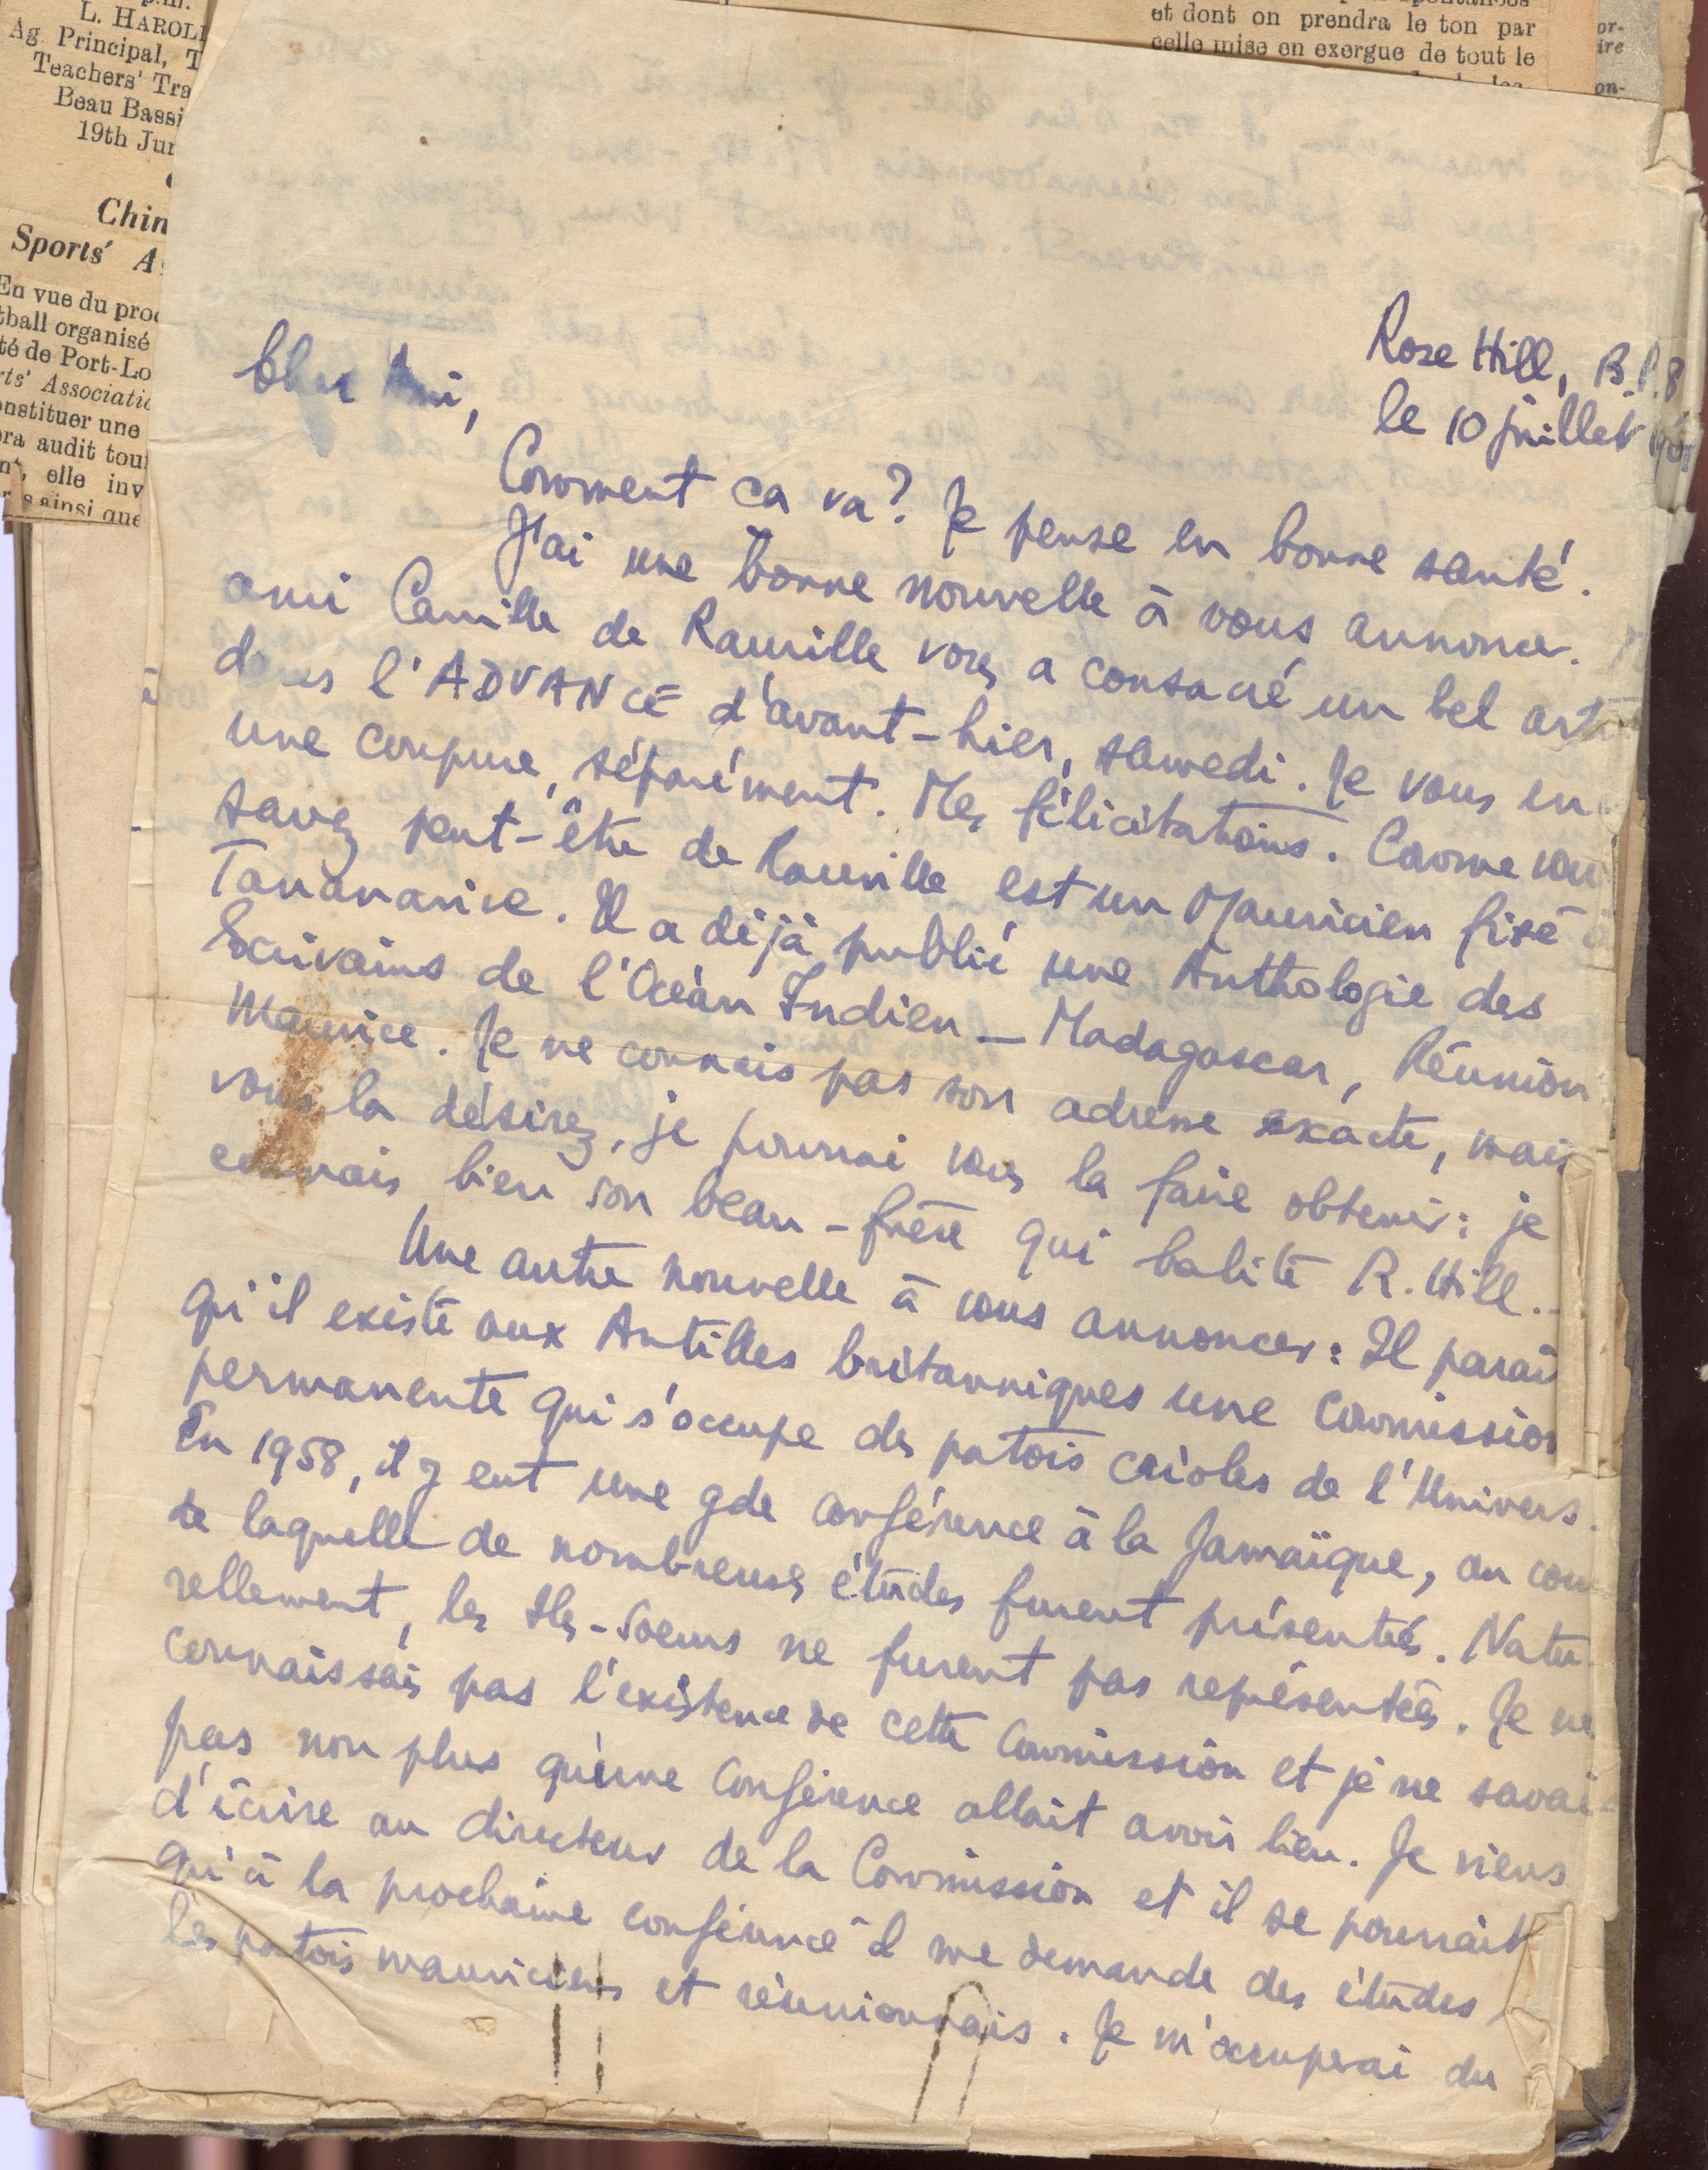 p.m.
L. HAROL
Ag. Principal, T
Teachers' Tra
Beau Bassi
19th Jun
Chin
Sports' A
En vue du pro
tball organisé
té de Port-Lo
rts' Associatio
onstituer une
ra audit tou
elle inv
ainsi que
et dont on prendra le ton par
celle mise en exergue de tout le
or-
ire
on-
Rose Hill, B.P. 8
le 10 juillet
Cher Ami,
Comment ca va? Je pense en bonne santé.
J'ai une bonne nouvelle à vous annoncer.
ami Camille de Rauville vous a consacré un bel arti
dans l'ADVANCE d'avant-hier, samedi. Je vous en
une coupure, séparément. Mes félicitations. Comme vou
savez peut-être de Rauville est un Mauricien fixé à
Tananarive. Il a déjà publié une Anthologie des
Ecrivains de l'Océan Indien — Madagascar, Réunion
Maurice. Je ne connais pas son adresse exacte, mais
vous la désirez, je pourrai vous la faire obtenir: je
connais bien son beau-frère qui habite R. Hill.
Une autre nouvelle à vous annoncer: Il paraît
qu'il existe aux Antilles britanniques une Commission
permanente qui s'occupe des patois créoles de l'Univers.
En 1958, il y eut une gde conférence à la Jamaïque, au cou
de laquelle de nombreuses études furent présentées. Natu-
rellement, les Iles-Soeurs ne furent pas représentées. Je ne
connaissais pas l'existence de cette Commission et je ne savai-
pas non plus qu'une Conférence allait avoir lieu. Je viens
d'écrire au directeur de la Commission et il se pourrait
qu'à la prochaine conférence il me demande des études
les patois mauriciens et réunionnais. Je m'occuperai du